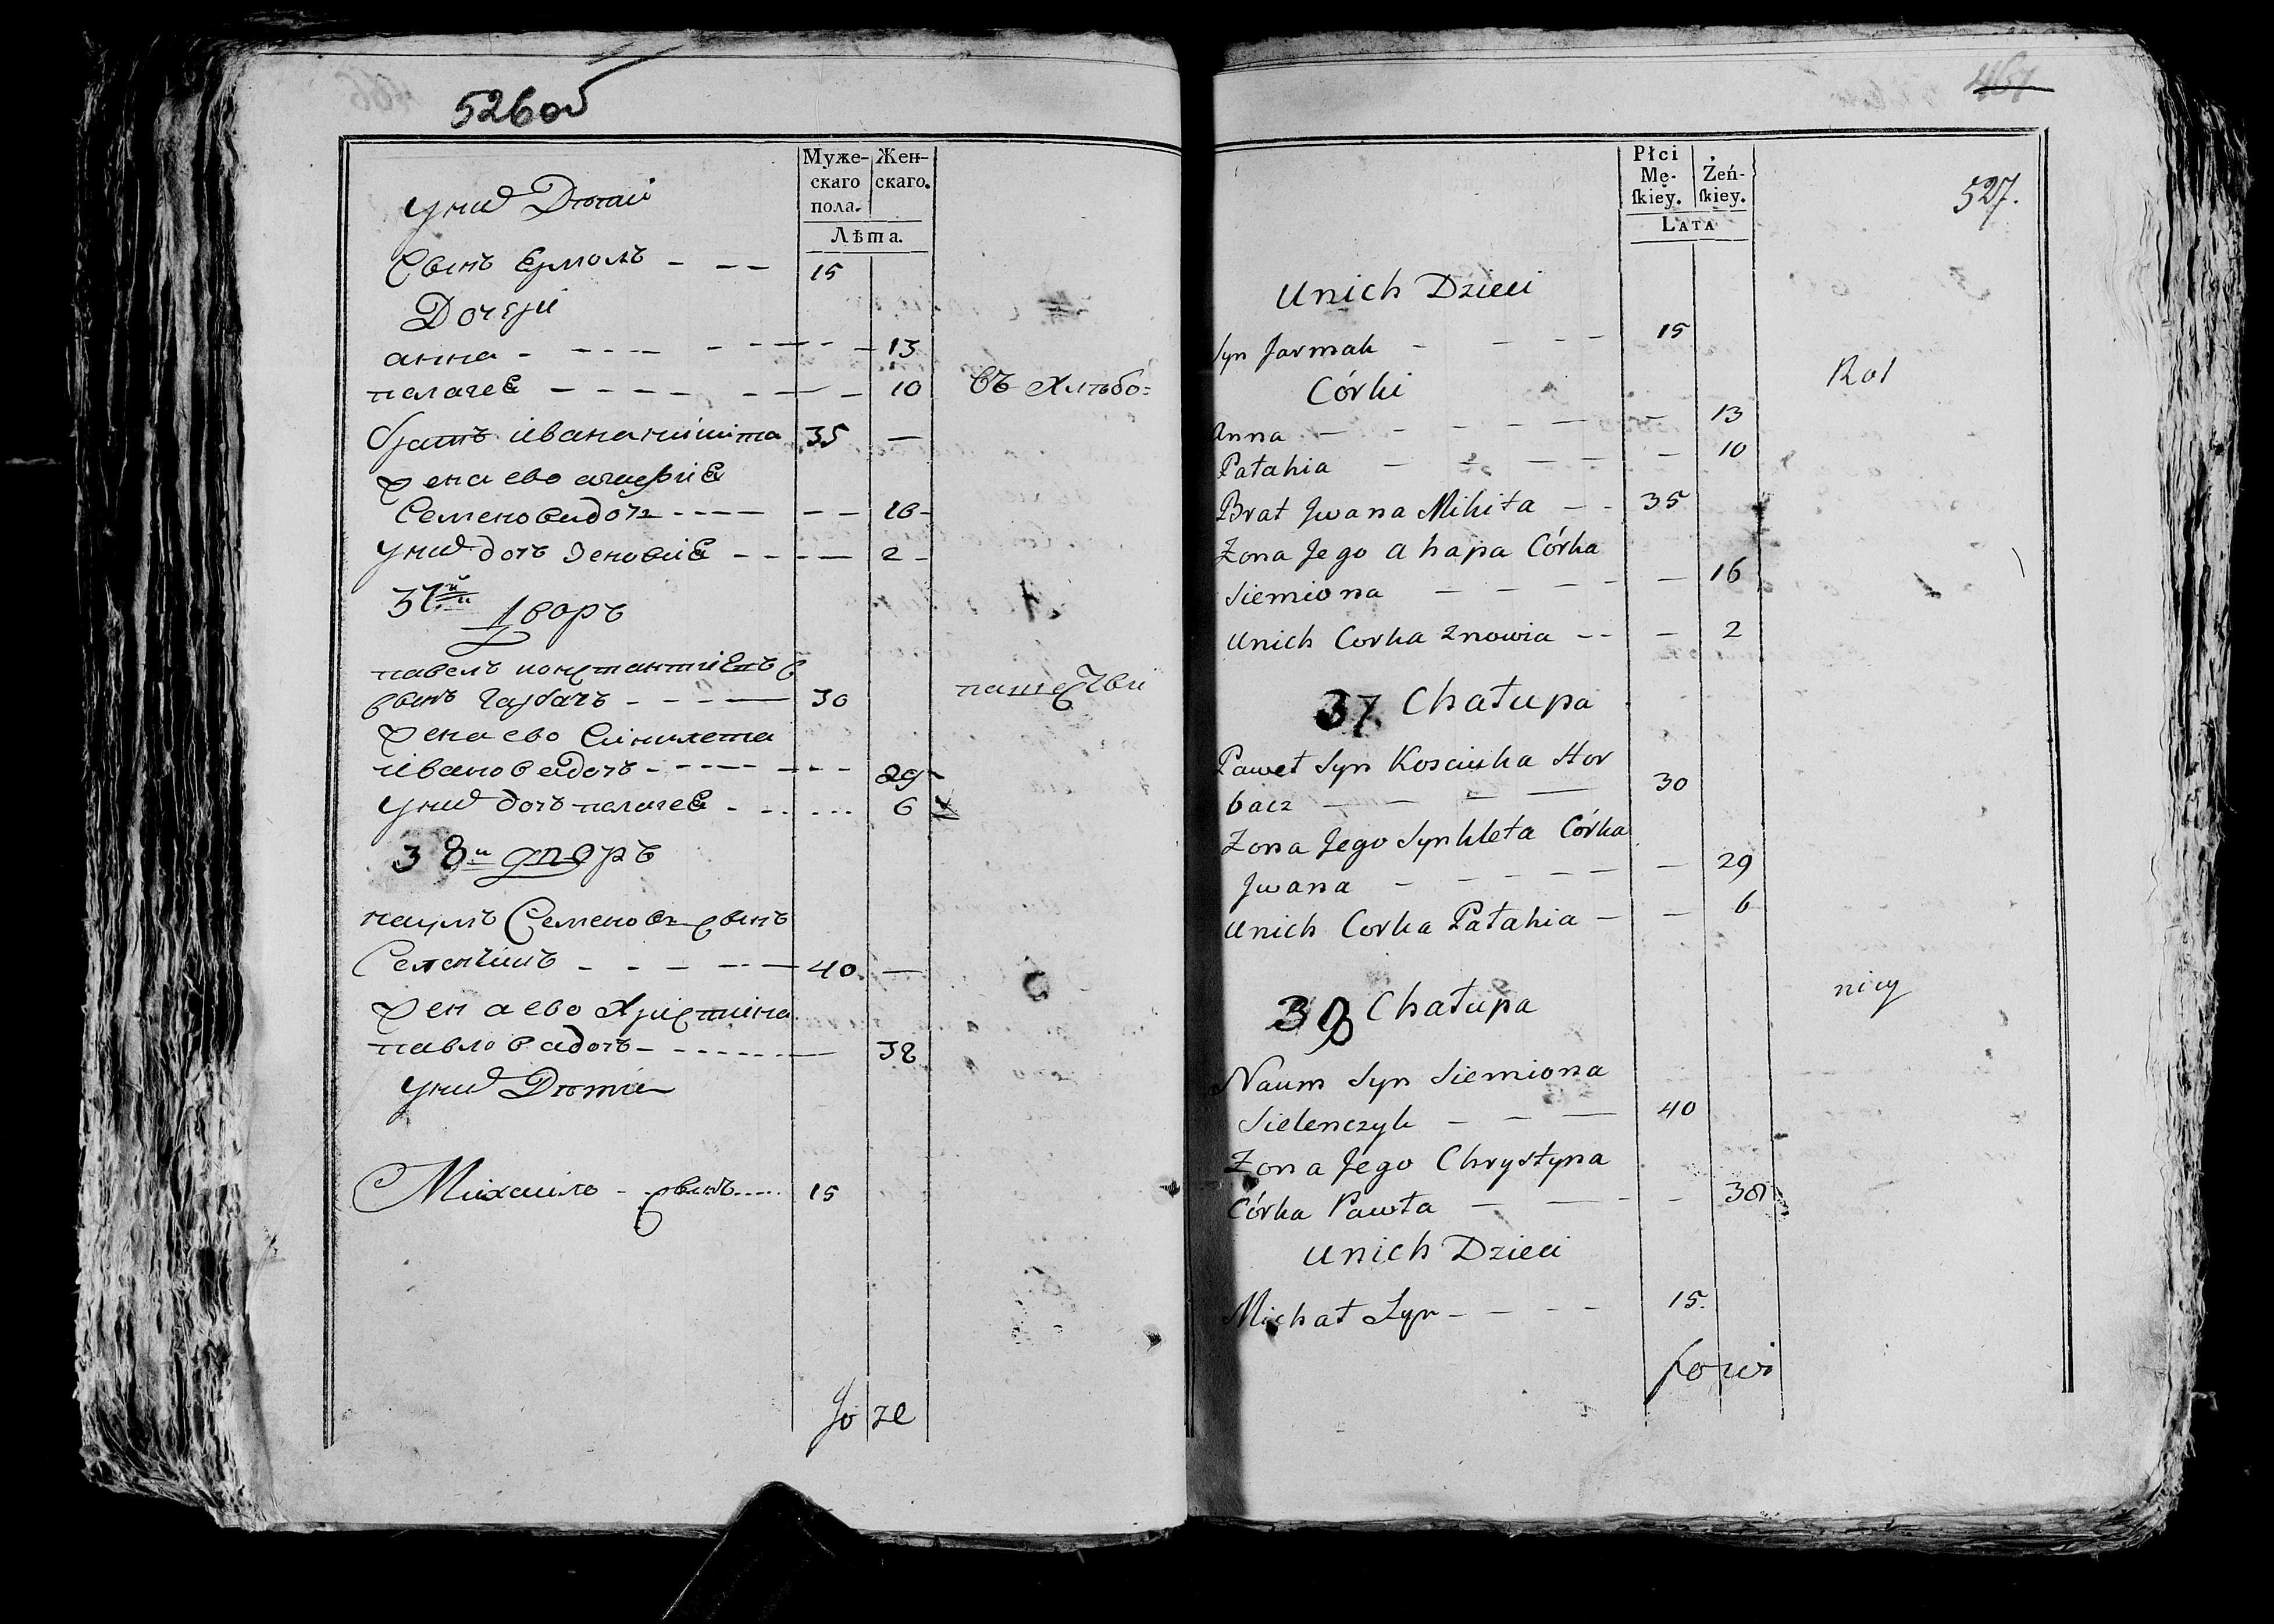 526об
Муже- Жен-
скаго скаго.
пола.
Лѣта.
у них Дѣти
Сынъ Ермолъ - -- 15
Дочери
анна - ---- 13
палагея ---- 10 въ Хлѣбо=
братъ ивана никита 35 —
жена ево агафия
Семенова дочь ---- -- 16
у них дочь зеновия --- 2
37й
дворъ
павелъ константиевъ
сынъ гарбачъ ---- 30 пашества
жена ево Синклета
иванова дочь ---- 29
у них дочь палагея - ... 6
38й дворъ
наумъ Семеновъ сынъ
Селенчикъ - - - -- 40 —
жена ево Христина
павлова дочь ------ 38
у них Дѣти
Михайло - сынъ.... 15
Jo ze
467
527.
Płci
Mę- Żeń-
ſkiey. ſkiey.
LATA
Unich Dzieci
Syn Jarmak - - - - 15
Córki Rol
Anna - - - - - 13
Pałahia - - - - 10
Brat Jwana Mikita - - 35
Zona Jego ahapa Córka
Siemiona - - - - 16
Unich Corka Znowia -- - 2
37. Chałupa
Paweł Syn Kosciuka Hor
bacz - - - - 30
Zona Jego Synkleta Córka
Jwana - - - - - - 29
Unich Corka Pałahia - - 6
38 Chałupa nicy
Naum Syn Siemiona
Sielenczyk - - - 40
Zona Jego Chrystyna
Córka Pawła - - - - 38
Unich Dzieci
Michał Syn - - - - 15.